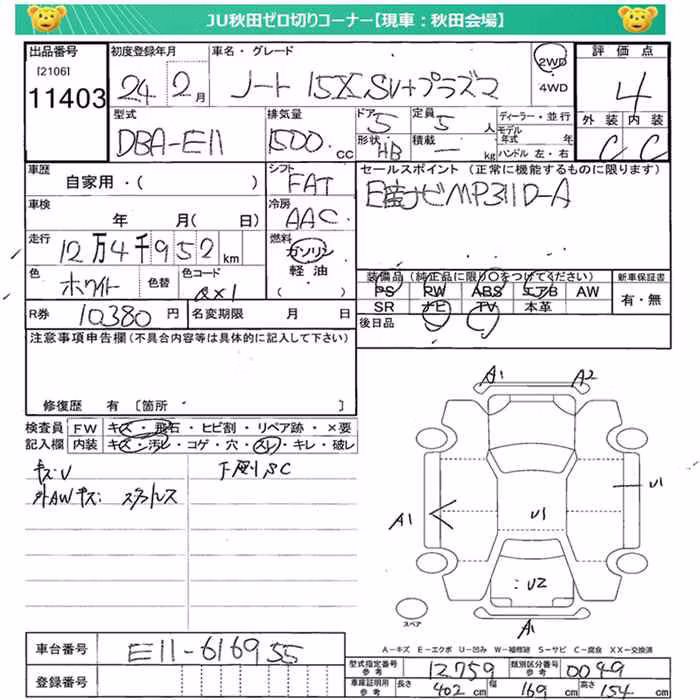 JU秋田ゼロ切りコーナー【現車：秋田会場】
出品番号 初度登録年月 車名・グレード 評価点
[2106]
11403 24 2月 ノート 15X SV+プラズマ 2WD 4WD 4
型式 排気量 ドア 定員 ディーラー・並行 外装 内装
DBA-E11 1500 cc 5 5 人 モデル年式 年 C C
形状 積載 HB ー kg ハンドル 左・右
車歴 シフト セールスポイント (正常に機能するものに限ります)
自家用・( ) FAT 日産ナビMP311D-A
車検 冷房
年 月( 日) AAC
走行 燃料
12万4千952km ガソリン
軽油
( )
色 色替 色コード 装備品 (純正品に限り○をつけてください) 新車保証書
ホワイト QX1 PS RW ABS エアB AW 有・無
SR ナビ TV 本革
R券 10380円 名変期限 月 日 後日品
注意事項申告欄(不具合内容等は具体的に記入して下さい)
修復歴 有 〔箇所 〕
検査員 FW キズ・飛石・ヒビ割・リペア跡・×要
記入欄 内装 キズ・汚レ・コゲ・穴・スレ・キレ・破レ
キズ:U 下廻りSC
外AWキズ:
A1 A2
A1 U1 U1
U2
スペア A1
A－キズ E－エクボ U－凹み W－補修跡 S－サビ C－腐食 XX－交換済
車台番号 E11-616955
登録番号
型式指定番号 参考 12759 類別区分番号 参考 0049
車庫証明用 参考 長さ 402 cm 幅 169 cm 高さ 154 cm